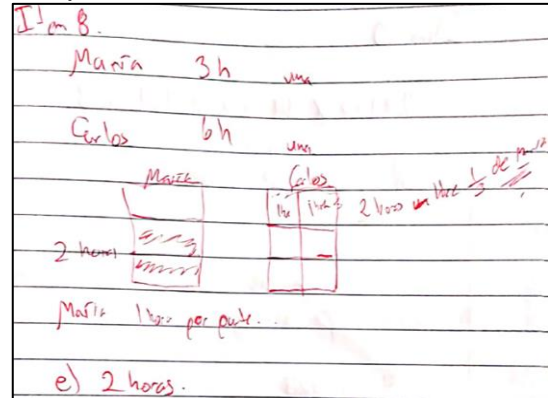 I'm B.
María 3h una
Carlos 6h una
María Carlos
1hr 1hra 2 horas hace 1/3 de
2 horas
María 1 hora por parte...
e) 2 horas.